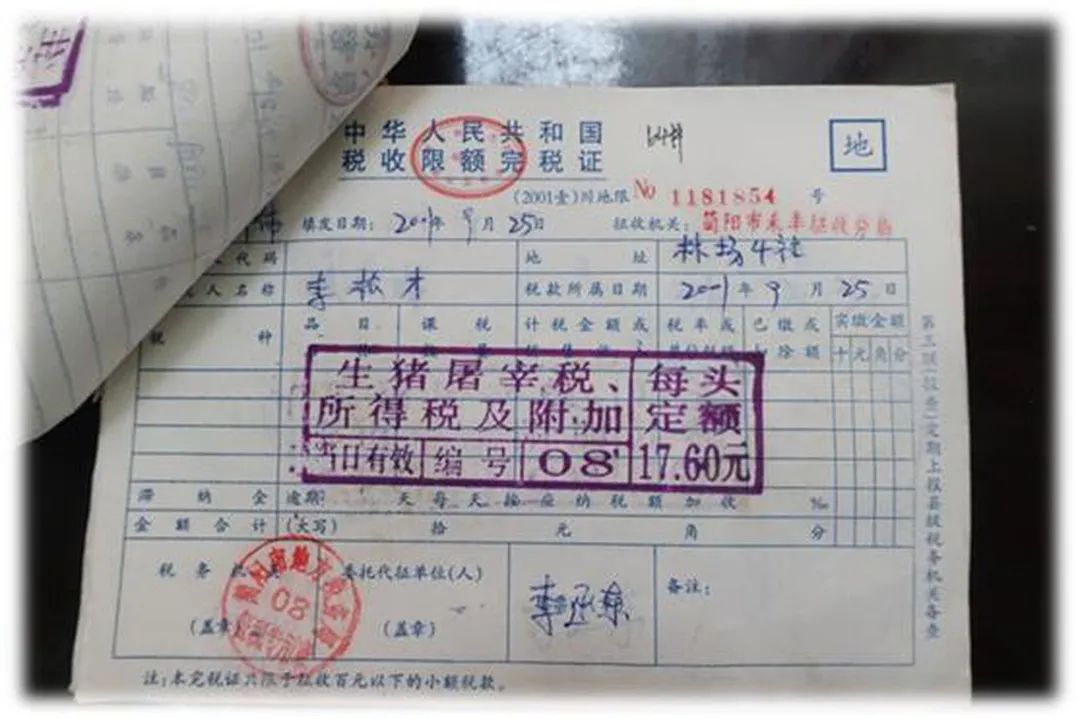 中华人民共和国
税收限额完税证
地
(2001壹)川地限 No 1181854 号
填发日期: 2001年9月25日 征收机关: 简阳市禾丰征收分局
代码 地址 林场4社
人名称 李松才 税款所属日期 2001年9月25日
税种 品目 课税 计税金额或 税率或 已缴或 实缴金额
扣除额 十元角分
生猪屠宰税、 每头
所得税及附加 定额
当日有效 编号 08 17.60元
滞纳金 逾期 天每天按应纳税额加收 ‰
金额合计 (大写) 拾 元 角 分
税务机关 委托代征单位(人) 备注:
(盖章) (盖章)
简阳市地方税务局
08
第三联(报查)定期上报县级税务机关备查
注:本完税证只限于征收百元以下的小额税款。